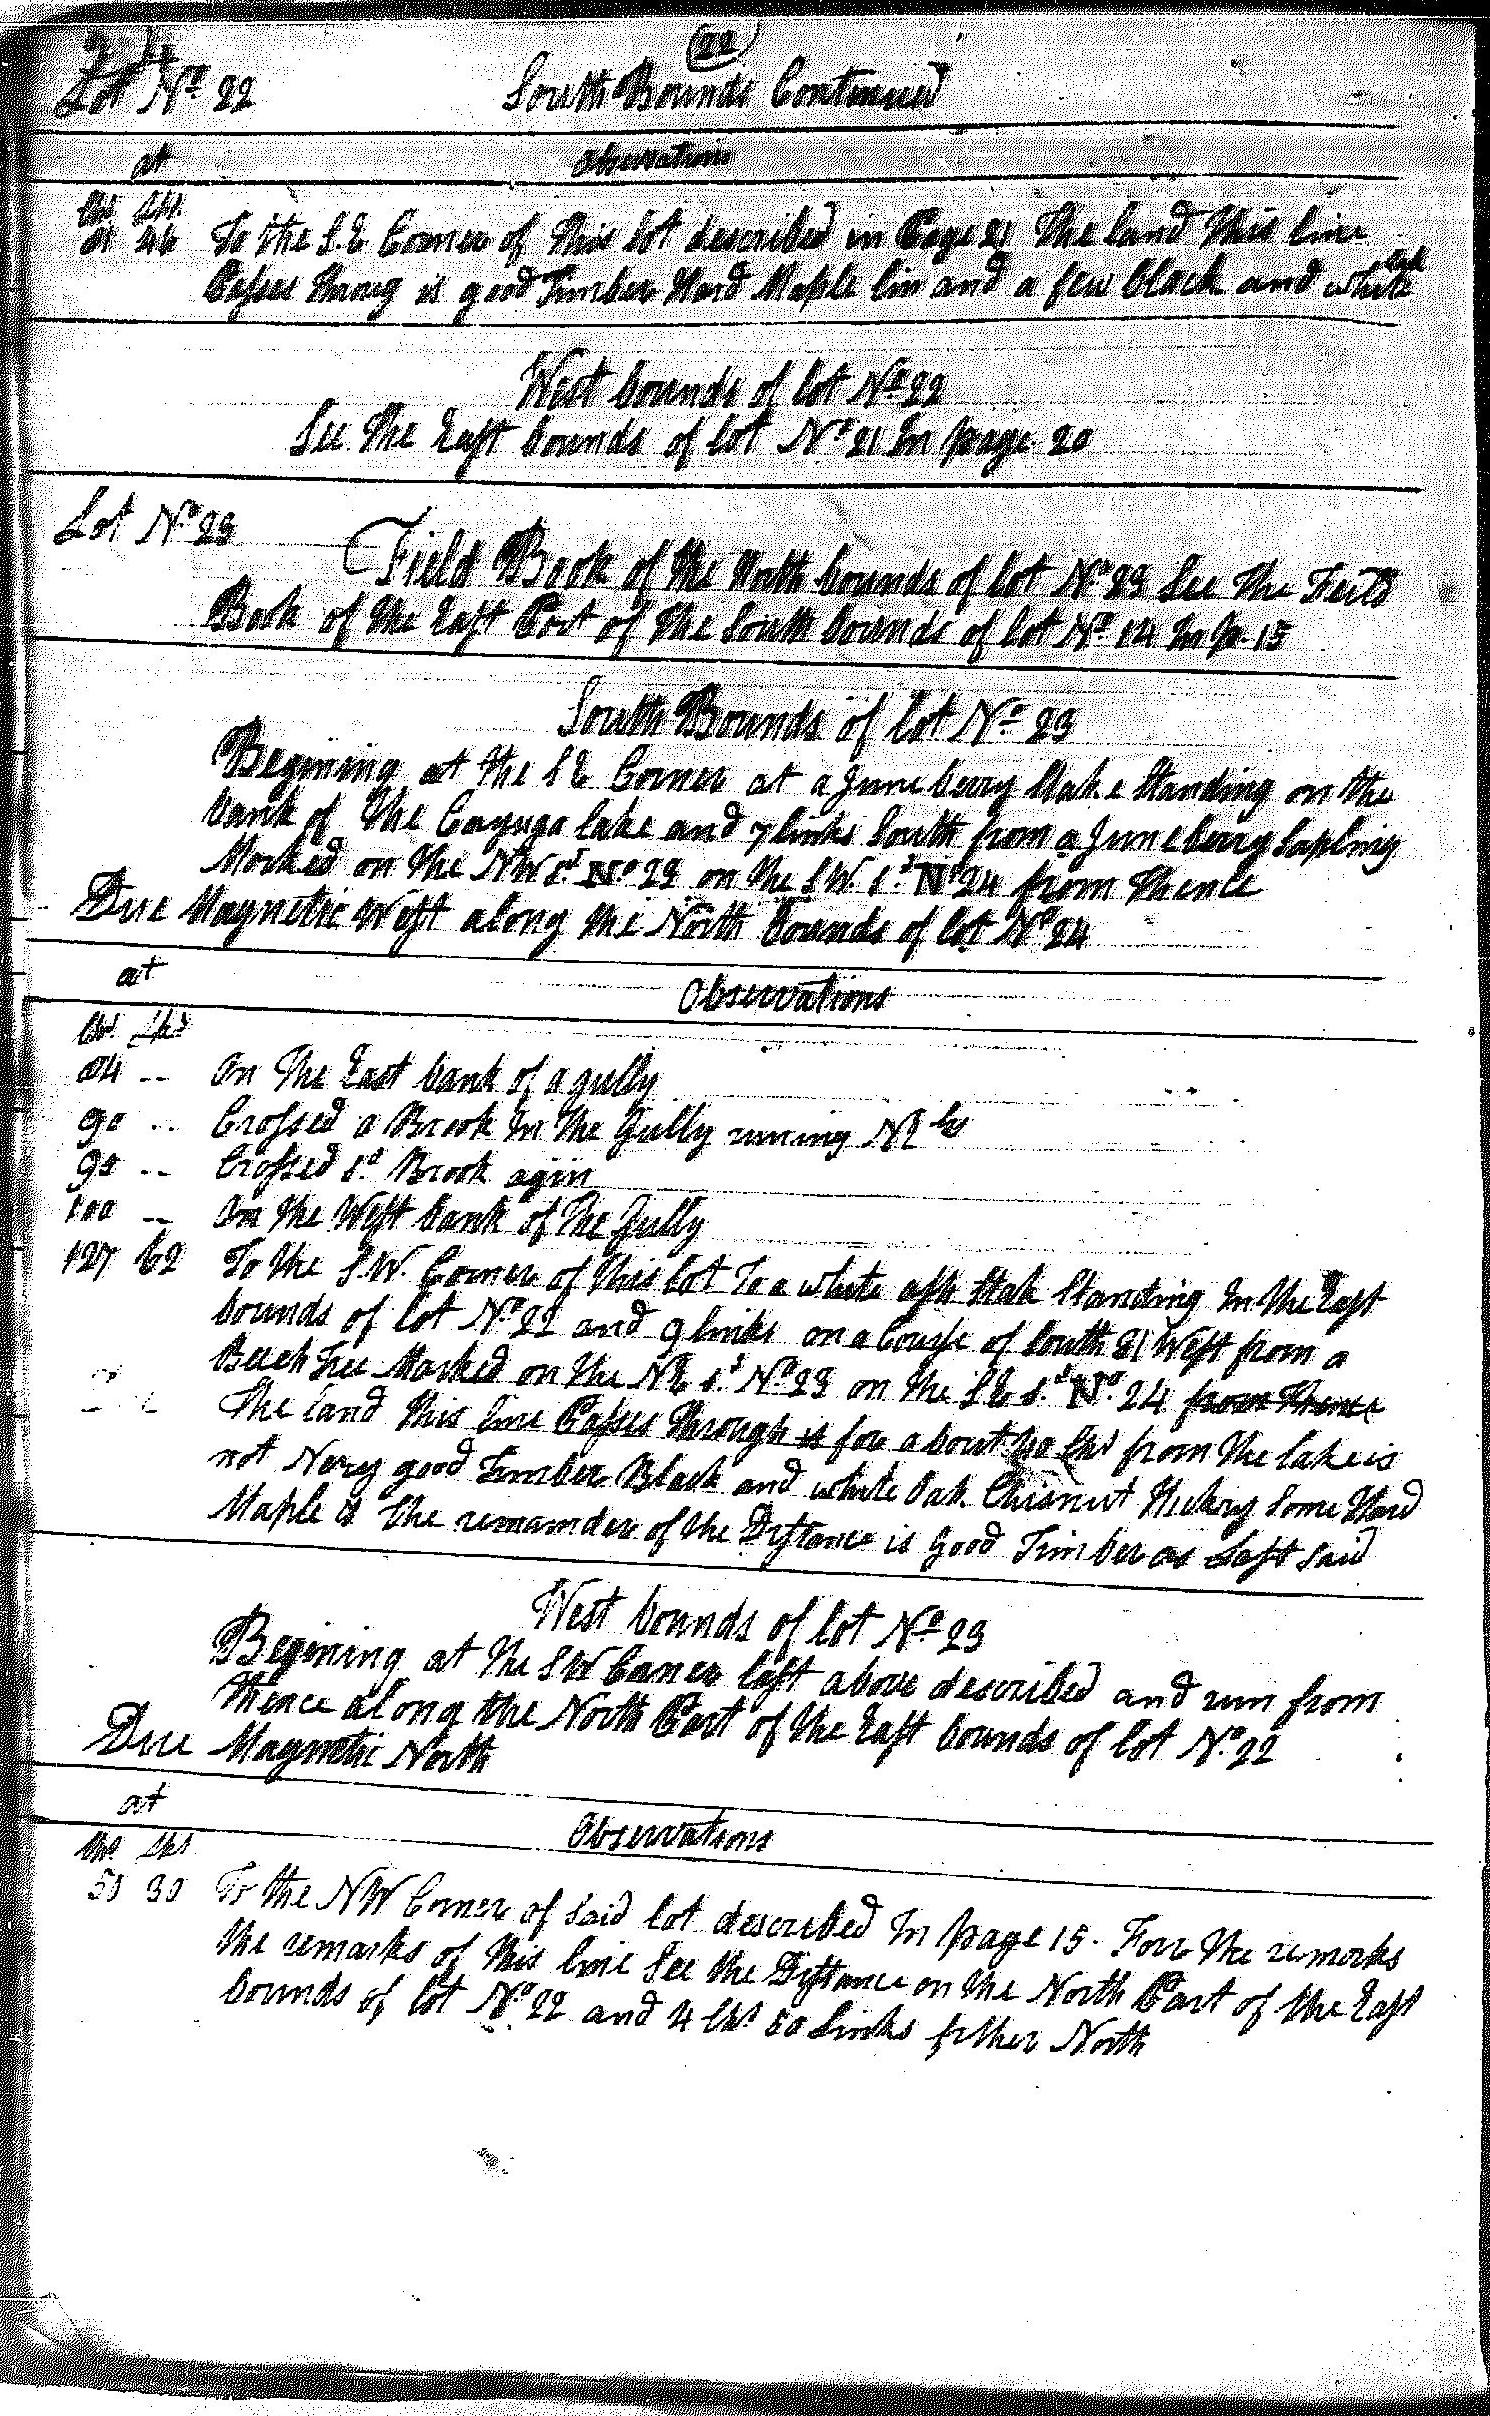 22
Lot No. 22 South Bounds Continued
at Observations
Chs. Lks.
46 To the S.E. Corner of this lot described in Page 21 The land this line
Passes throug is good Timber Hard Maple lin and a few black and white oak
West bounds of lot No. 22
See the East bounds of lot No. 21 In page 20
Lot No. 23
Field Book of the North bounds of lot No. 23 See the Feild
Book of the East Part of the South bounds of lot No. 14 In p. 15
South Bounds of lot No. 23
Begining at the S E Corner at a June berry Stake Standing on the
bank of the Cayuga lake and 7 links South from a June berry Sapling
Marked on the NW Sd. No. 23 on the S W. Sd. No. 24 from thence
Due Magnetic West along the North bounds of lot No. 24
at Observations
Chs. Lks
84 -- On the East bank of a gully
90 -- Crossed a Brook In the Gully runing N E ly
95 -- Crossed Sd. Brook agin
100 -- On the West bank of the Gully
127 62 To the S.W. Corner of this lot To a white ash Stak Standing In the East
bounds of lot No. 22 and 9 links on a Course of South 81 West from a
Beech Tree Marked on the N E Sd. No. 23 on the S E Sd. No. 24 from thence
The land this line Passes through is for about Chs from the lake is
not Very good Timber Black and white Oak Chisnut Hickory Some Hard
Maple & the remainder of the Distance is Good Timber as Last Said
West bounds of lot No. 23
Begining at the S W Corner last above described and run from
thence along the North Part of the East bounds of lot No. 22
Due Magnetic North
at Observations
Chs. Lks
50 30 To the NW Corner of Said lot described In page 15. Forr the remarks
the remarks of this line See the Distance on the North Part of the East
bounds of lot No. 22 and 4 Chs 50 Links frther North